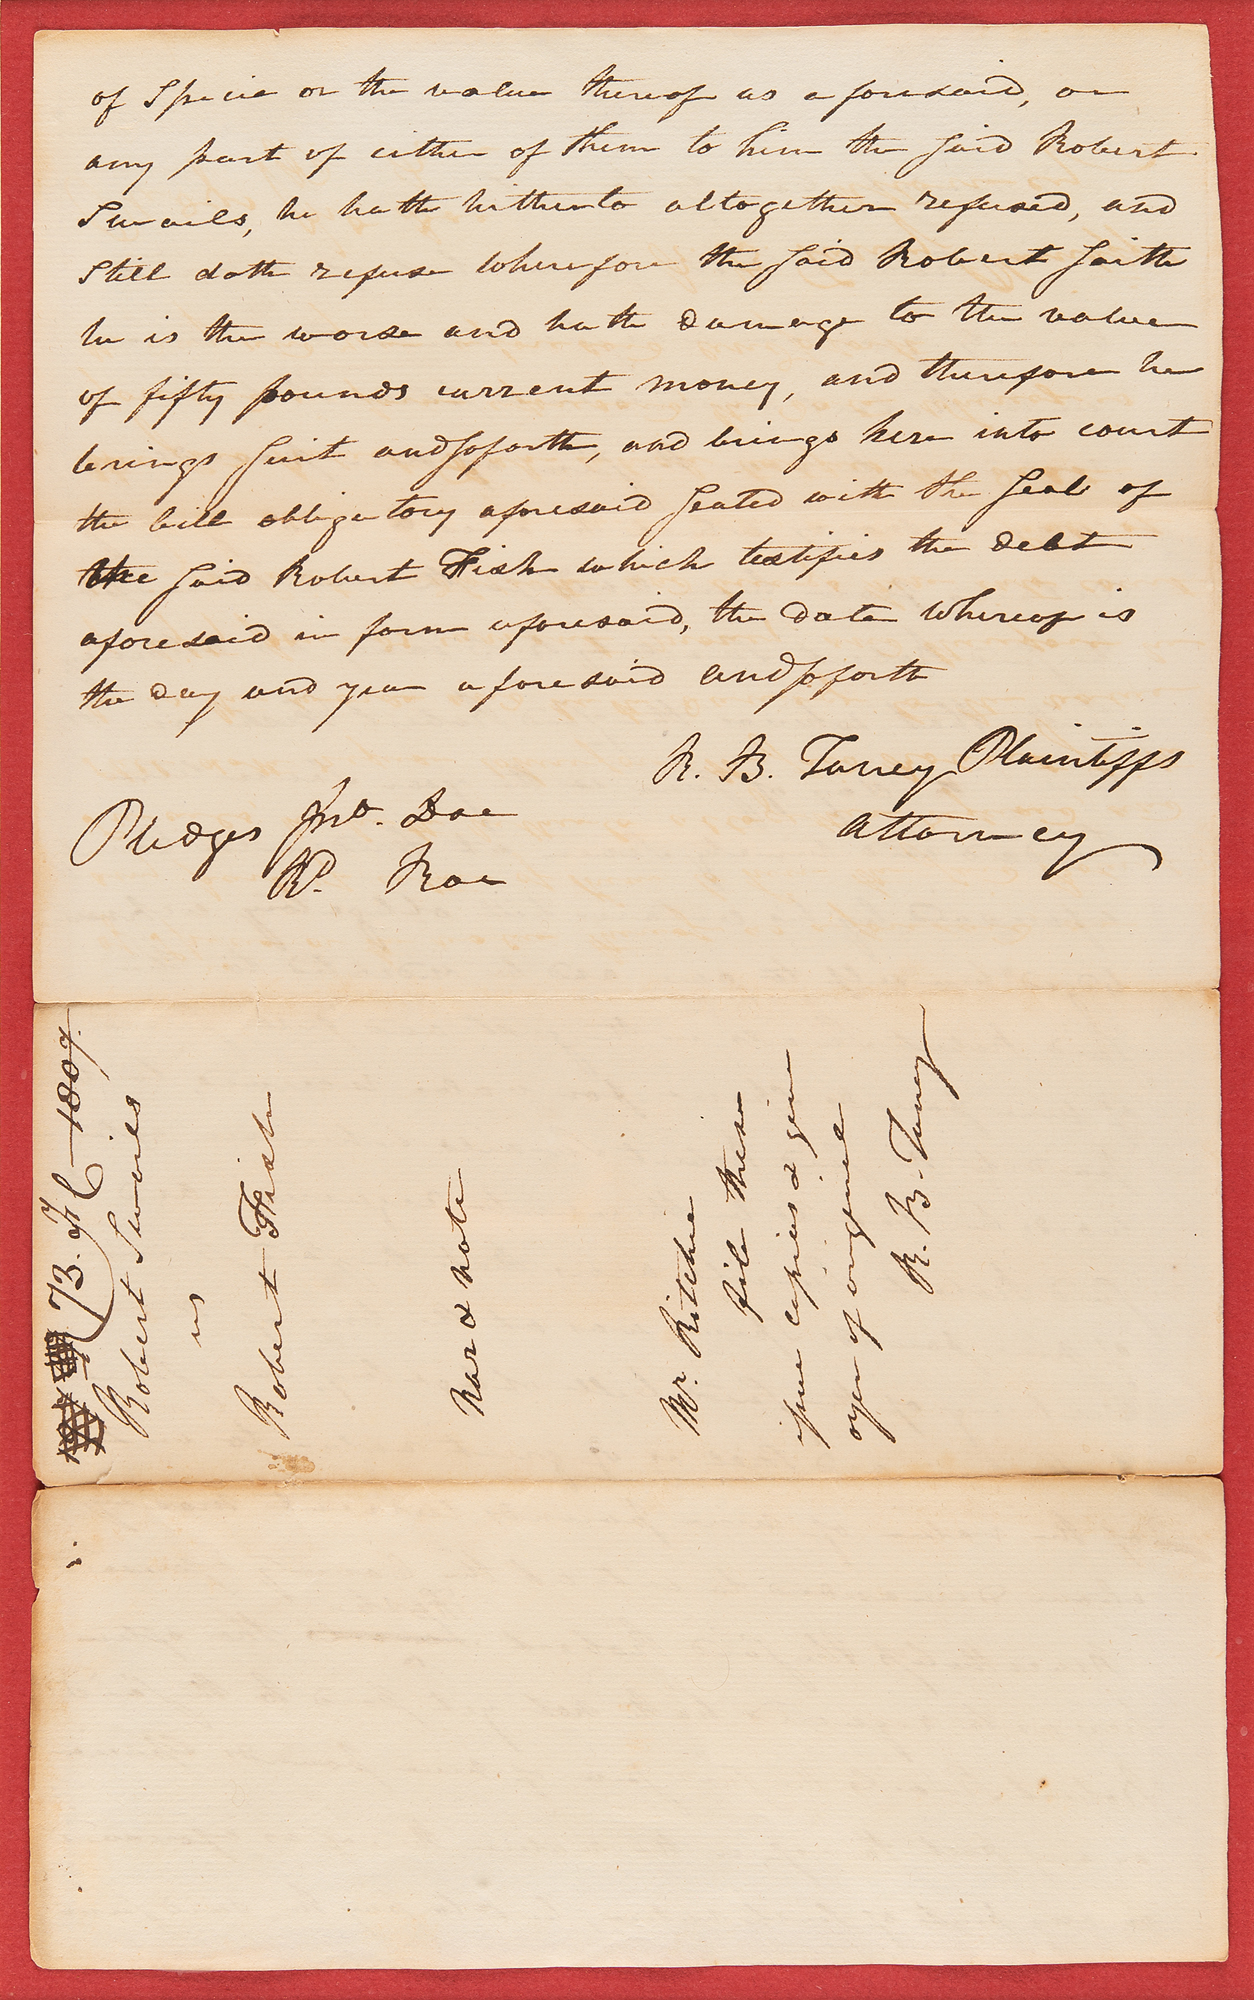 of Specie or the value thereof as aforesaid, or
any part of either of them to him the said Robert
Swails, he hath hitherto altogether refused, and
Still doth refuse wherefore the said Robert saith
he is the worse and hath damage to the value
of fifty pounds current money, and therefore he
brings suit and so forth, and brings here into court
the bill obligatory aforesaid sealed with the seal of
the said Robert Fish which testifies the debt
aforesaid in form aforesaid, the date whereof is
the day and year aforesaid and so forth
R. B. Taney Plaintiffs
Attorney
Pledges Jno. Doe
Rd. Roe
73. 1807.
Robert Swails
vs
Robert Fish
Nar & note
Mr. Ritchie
file these
issue copies & give
oyer of original
R. B. Taney